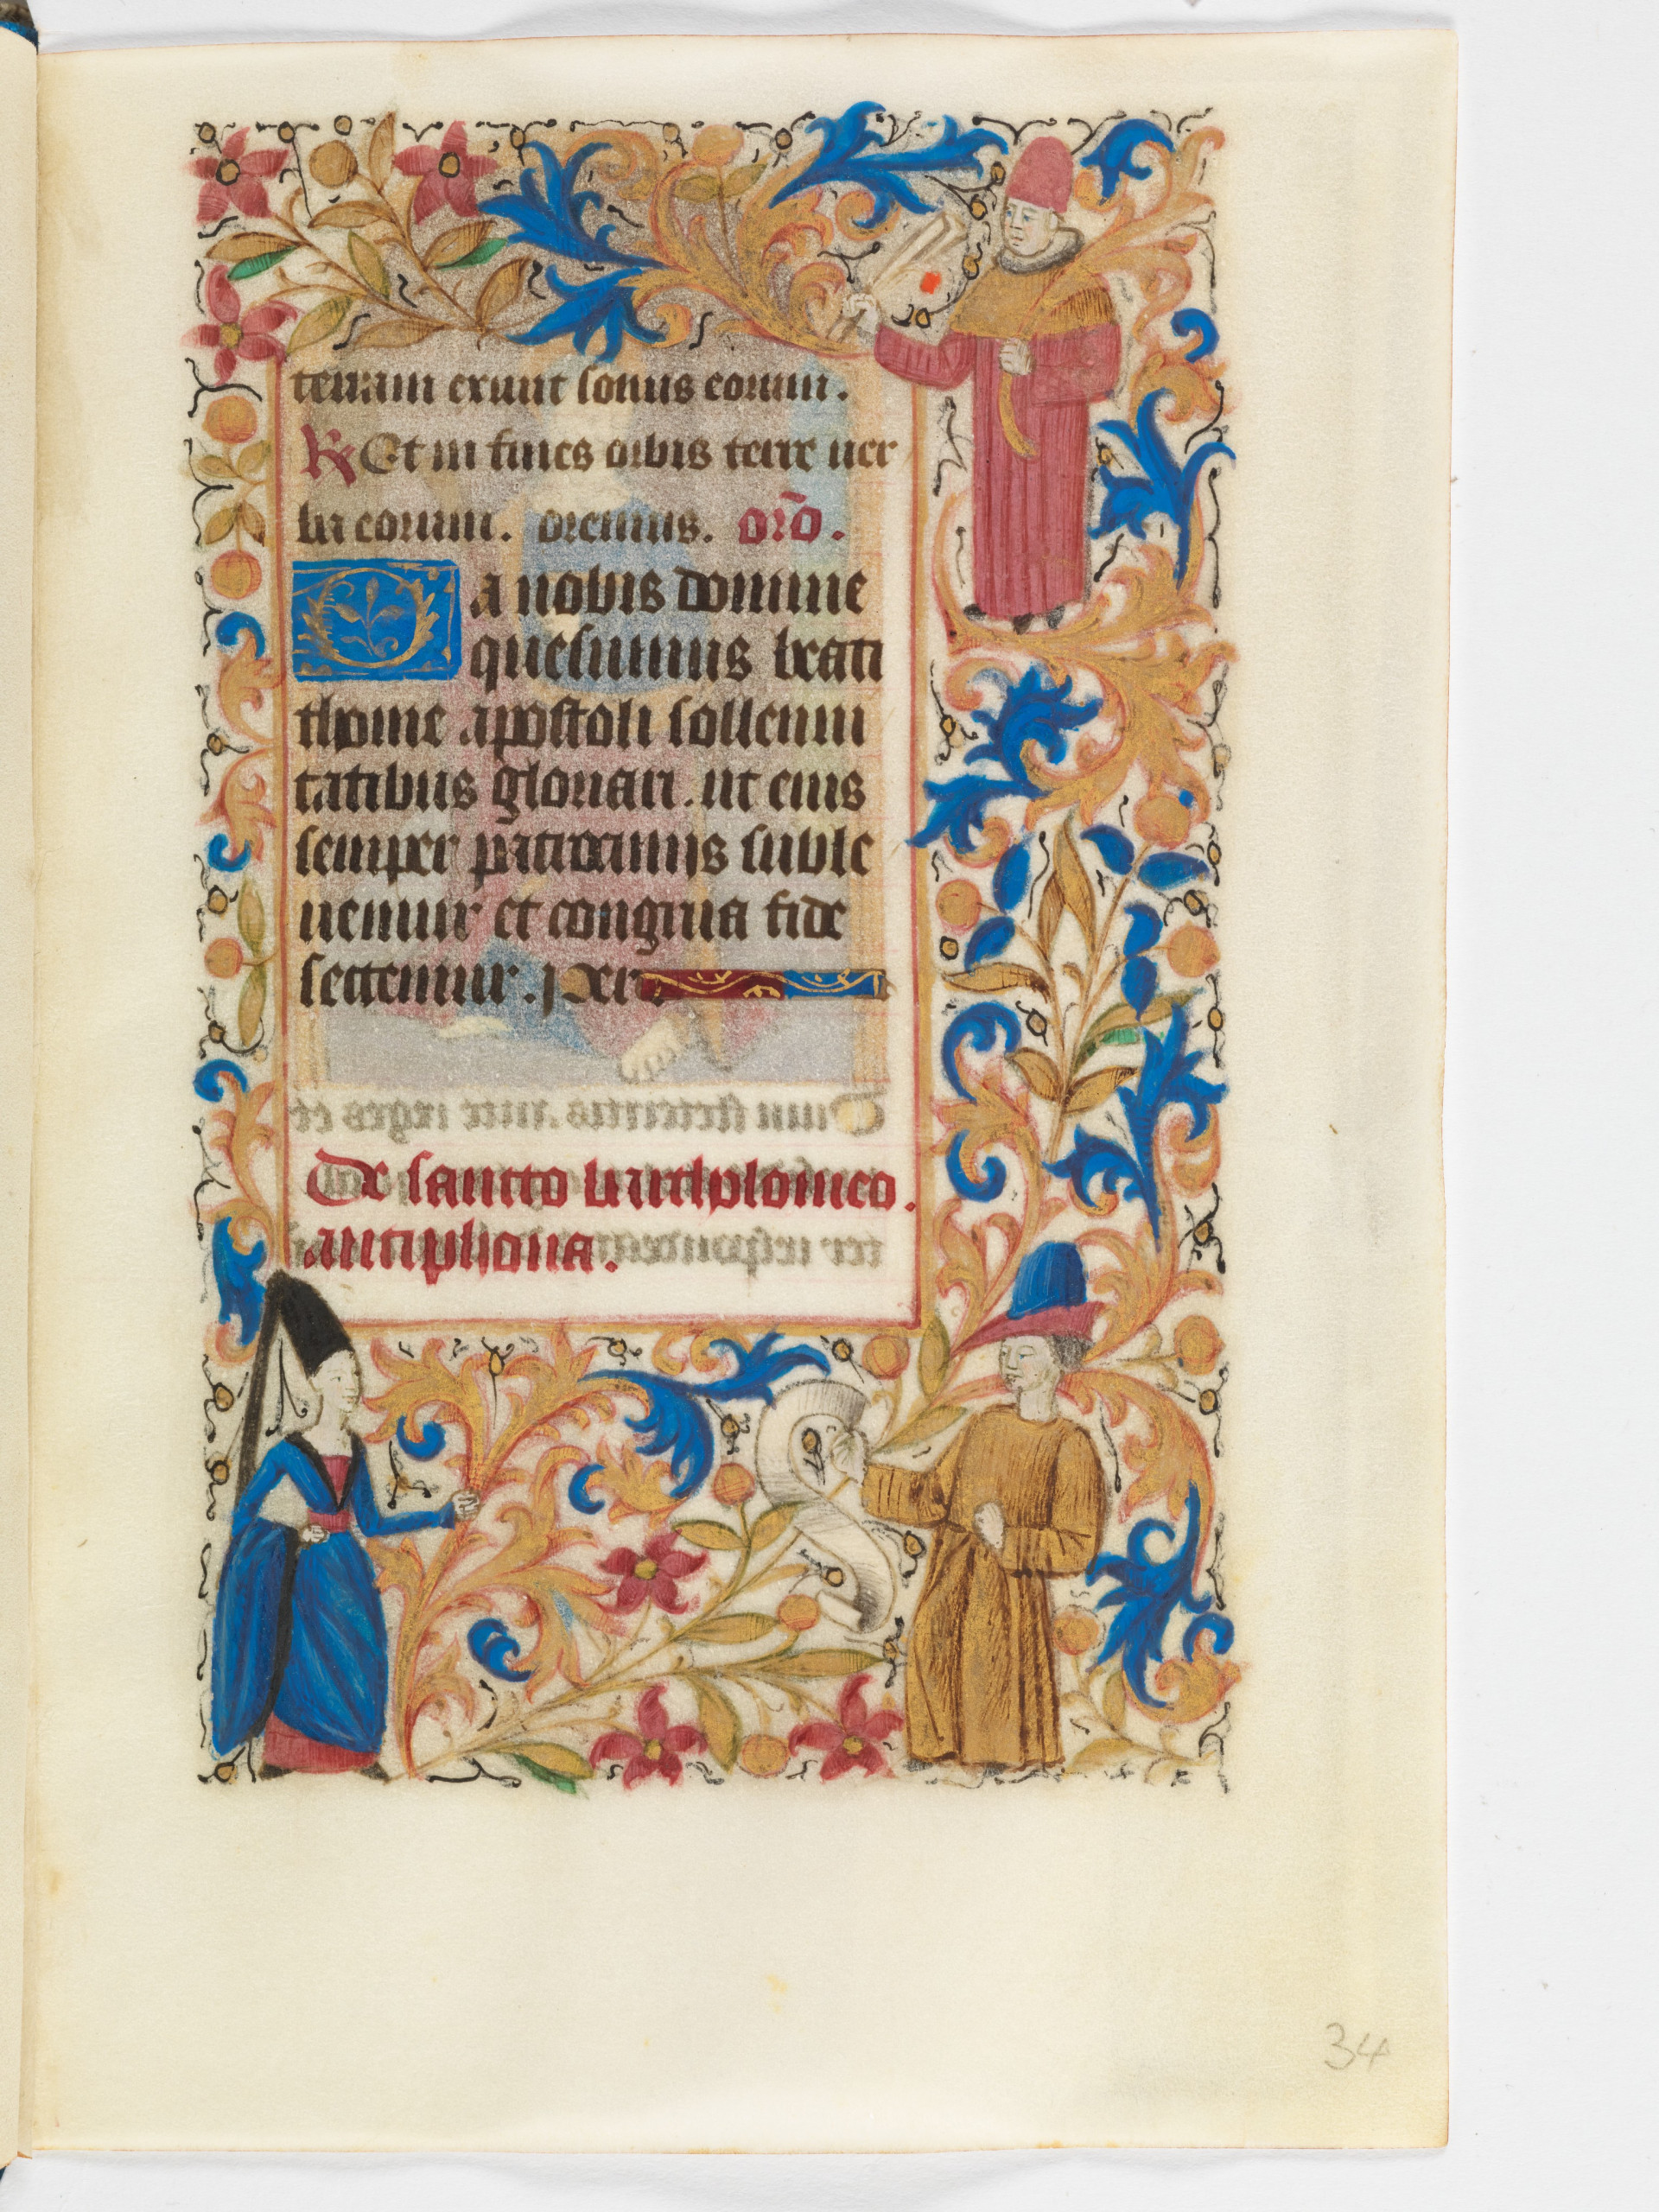 terram exiuit sonus eorum.
R Et in fines orbis terre uer
ba eorum. oremus. orō.
Da nobis domine
quesumus beati
thome apostoli sollemni
tatibus gloriari. ut eius
semper patrociniis suble
uemur et congrua fide
sectemur. per
De sancto bartholomeo.
antiphona.
34